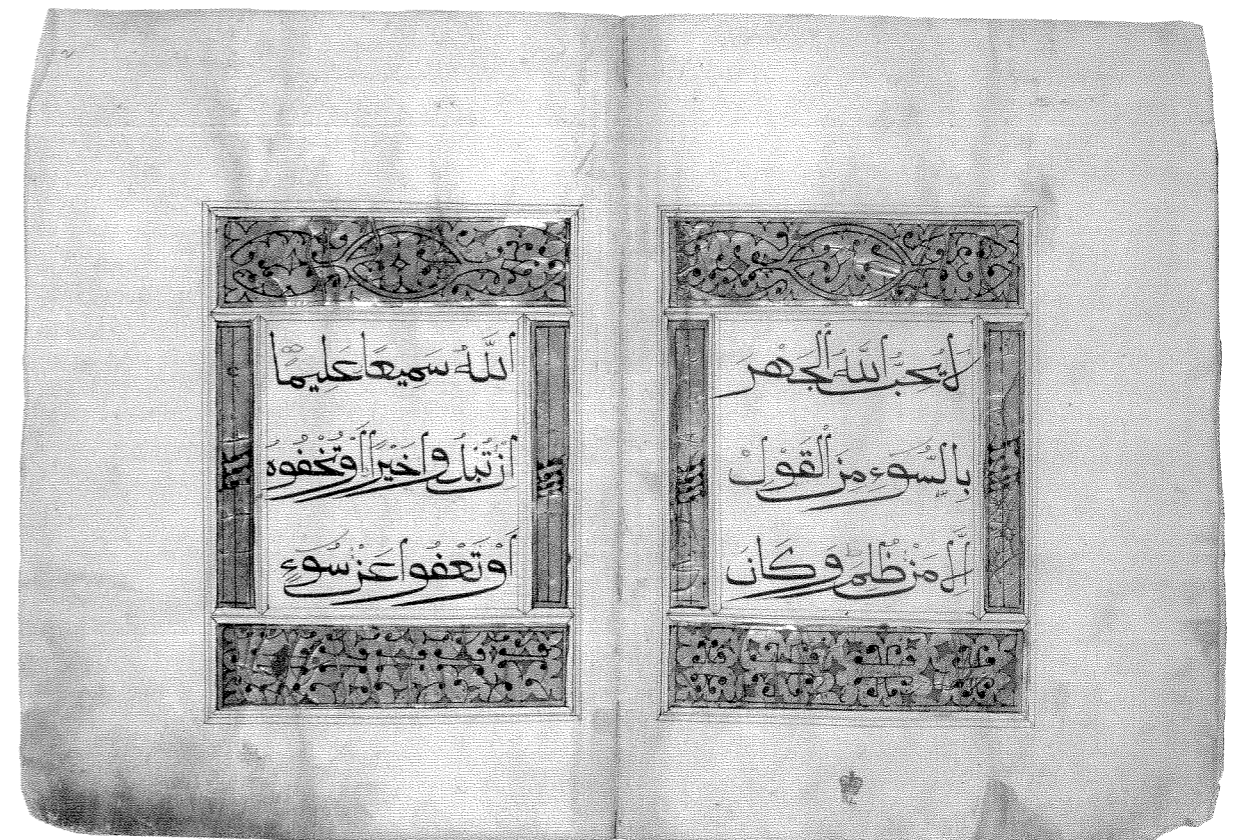 لَا يُحِبُّ اللَّهُ الْجَهْرَ
بِالسُّوءِ مِنَ الْقَوْلِ
إِلَّا مَنْ ظُلِمَ وَكَانَ
اللَّهُ سَمِيعًا عَلِيمًا
إِنْ تُبْدُوا خَيْرًا أَوْ تُخْفُوهُ
أَوْ تَعْفُوا عَنْ سُوءٍ